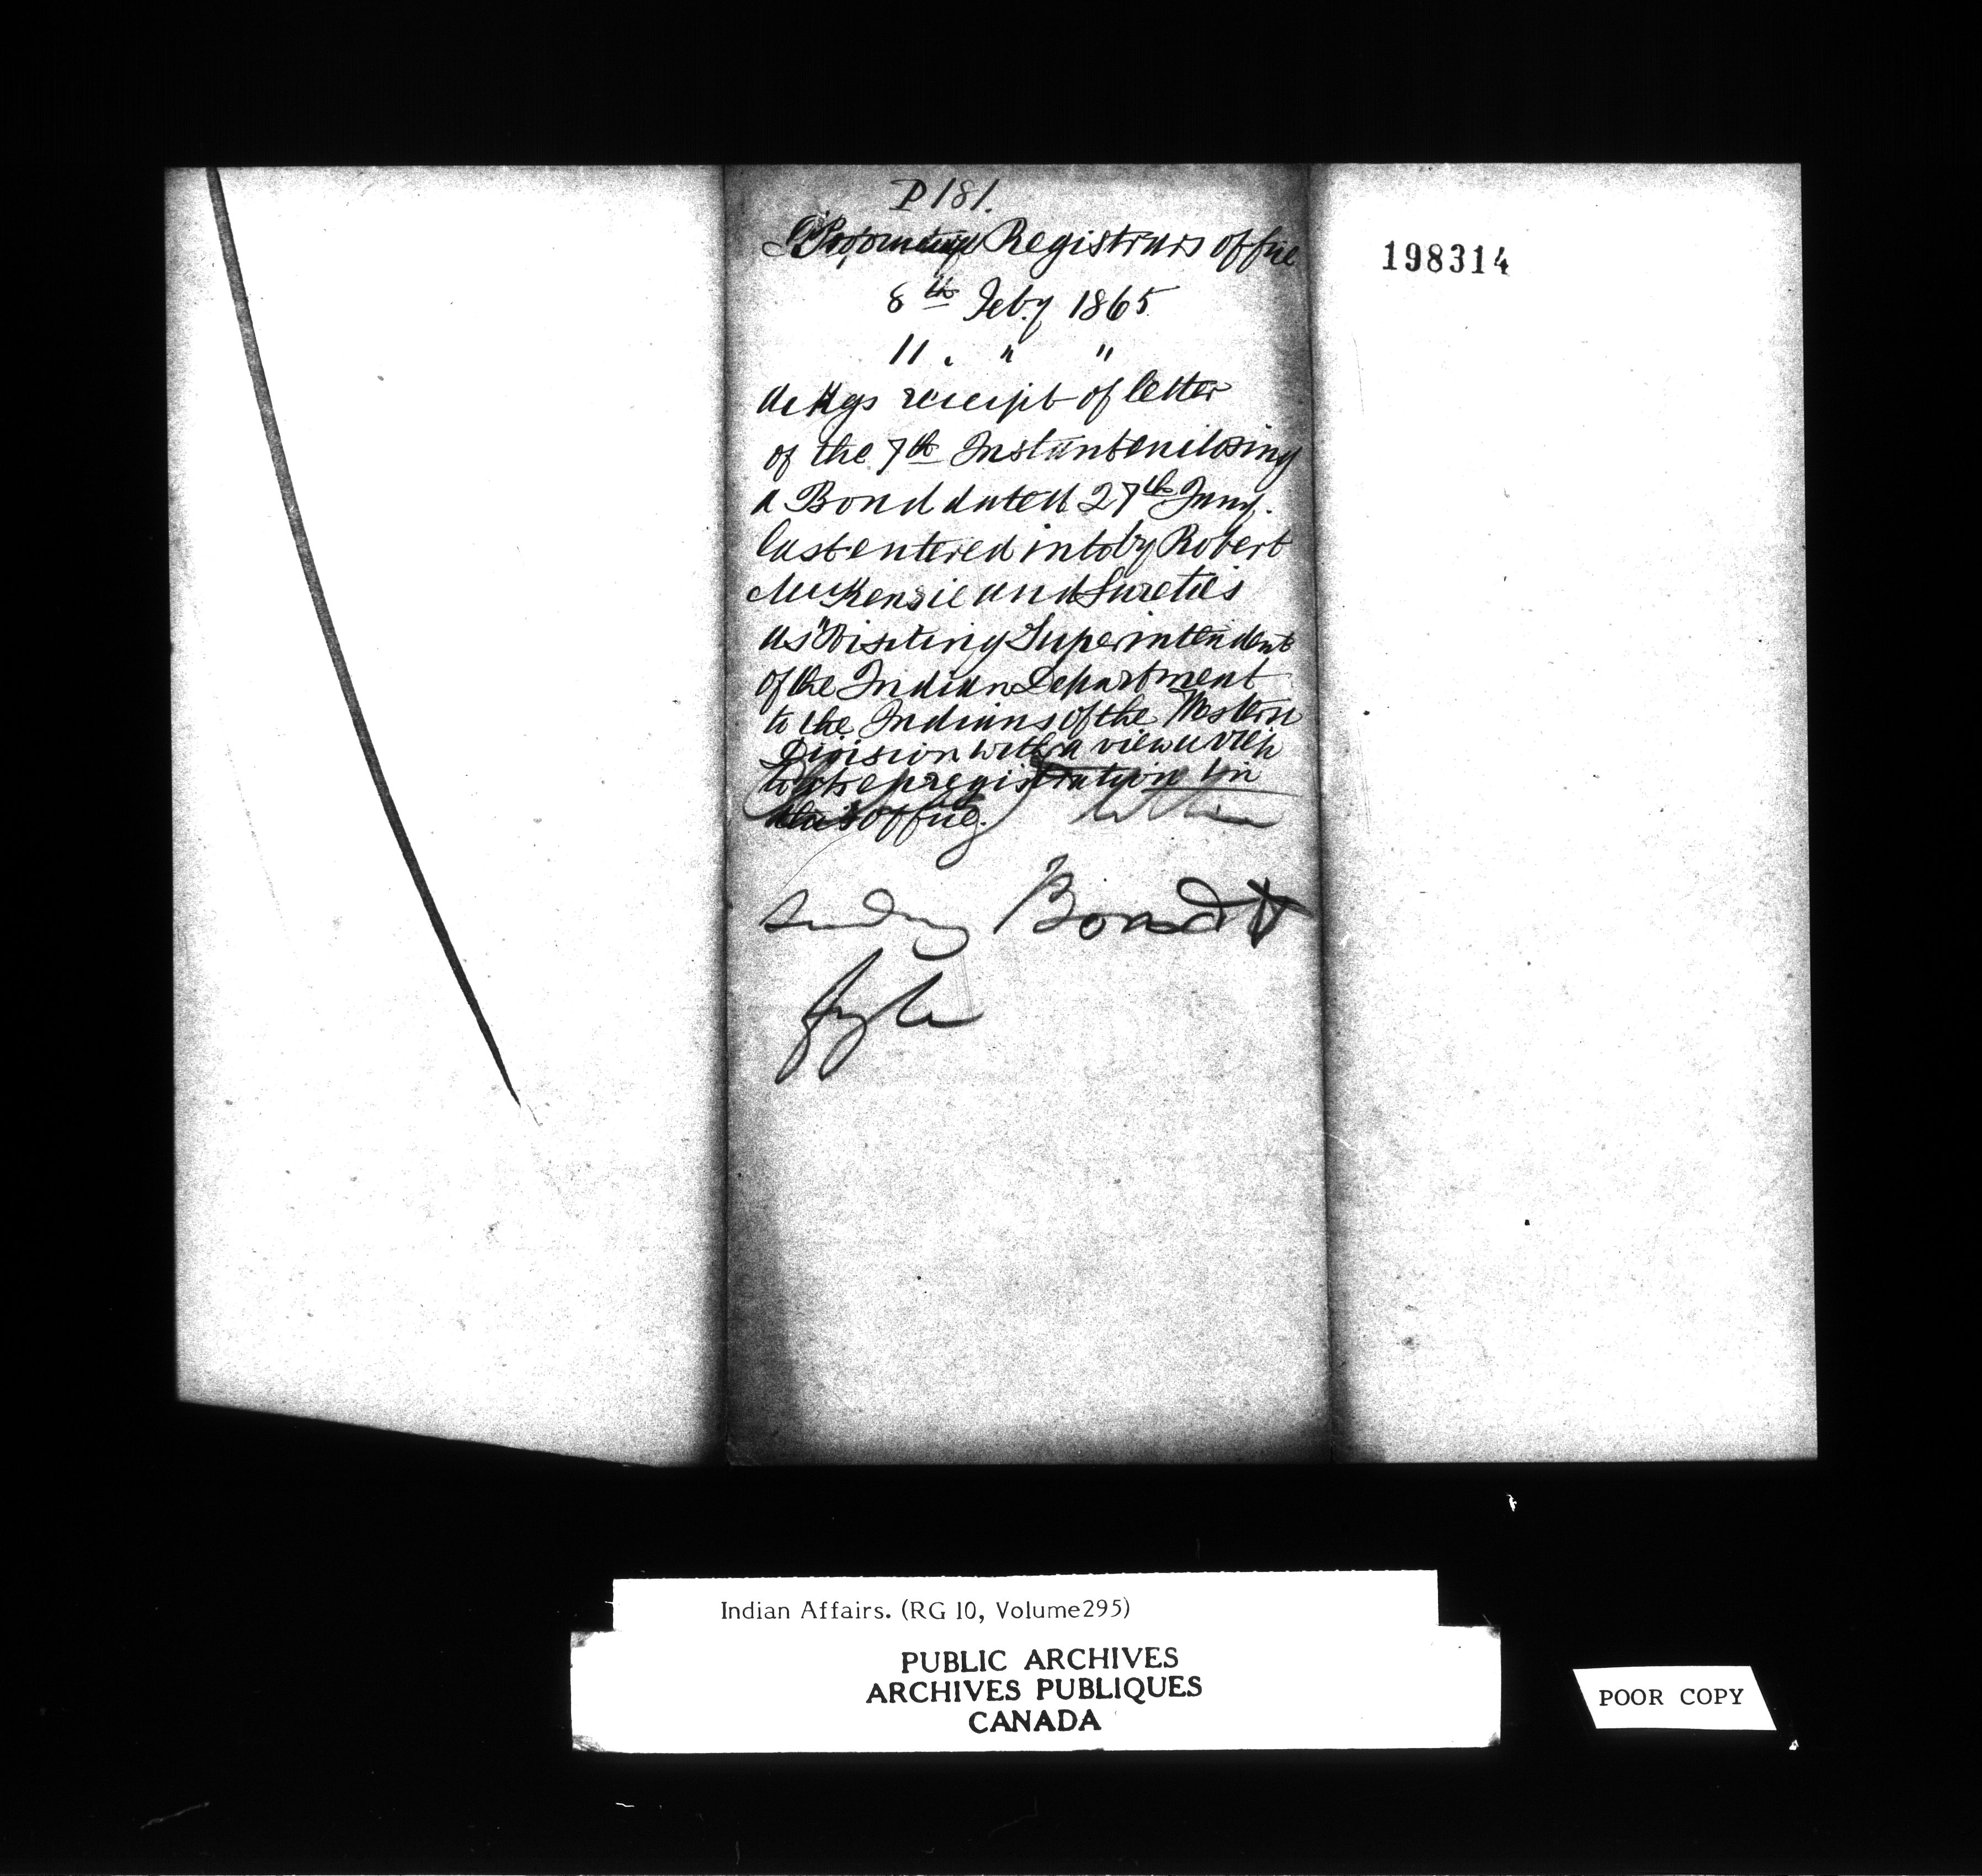 P 181.
Provincial Registrars office
8th Feby 1865
11 . " "
Ackgs receipt of letter
of the 7th Instant enclosing
a Bond dated 27th Jany.
last entered into by Robert
McKenzie and Sureties
as Visiting Superintendent
of the Indian Department
to the Indians of the Western
Division with a view
registration in
this office.
Bond
fyle
198314
Indian Affairs. (RG 10, Volume295)
PUBLIC ARCHIVES
ARCHIVES PUBLIQUES
CANADA
POOR COPY